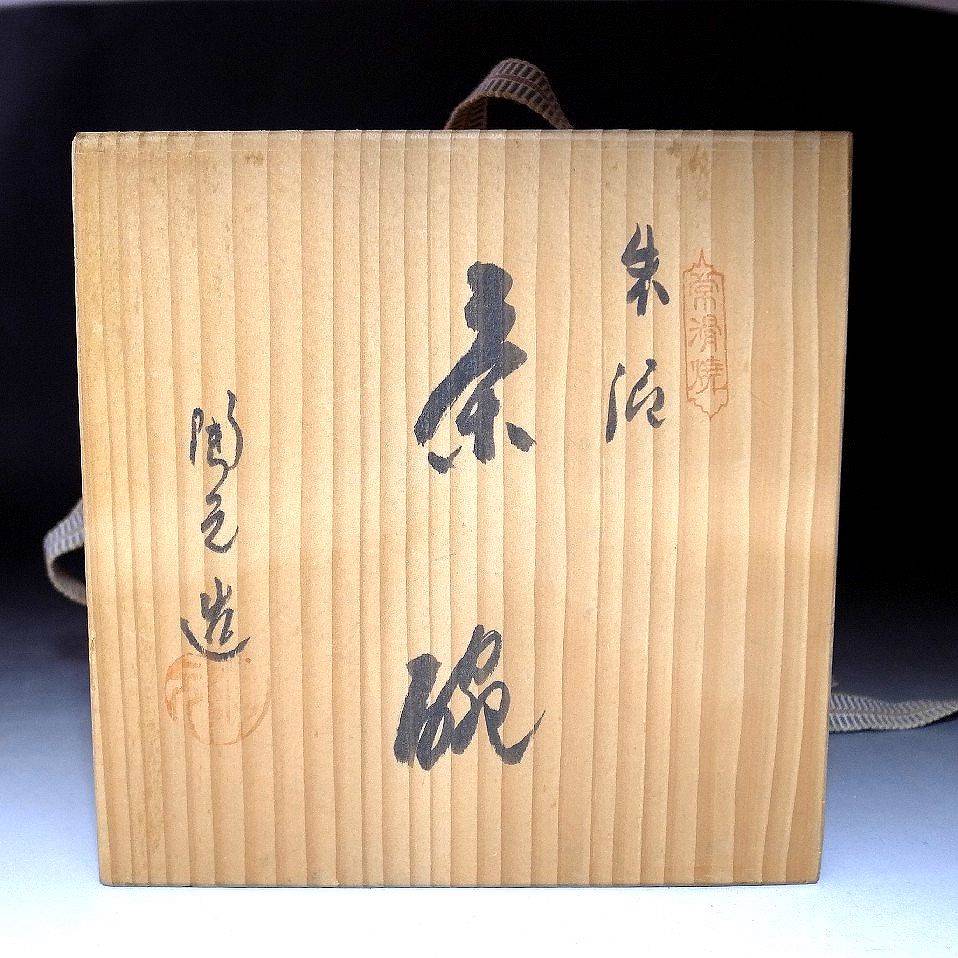 常滑焼
朱泥
茶碗
陶元造